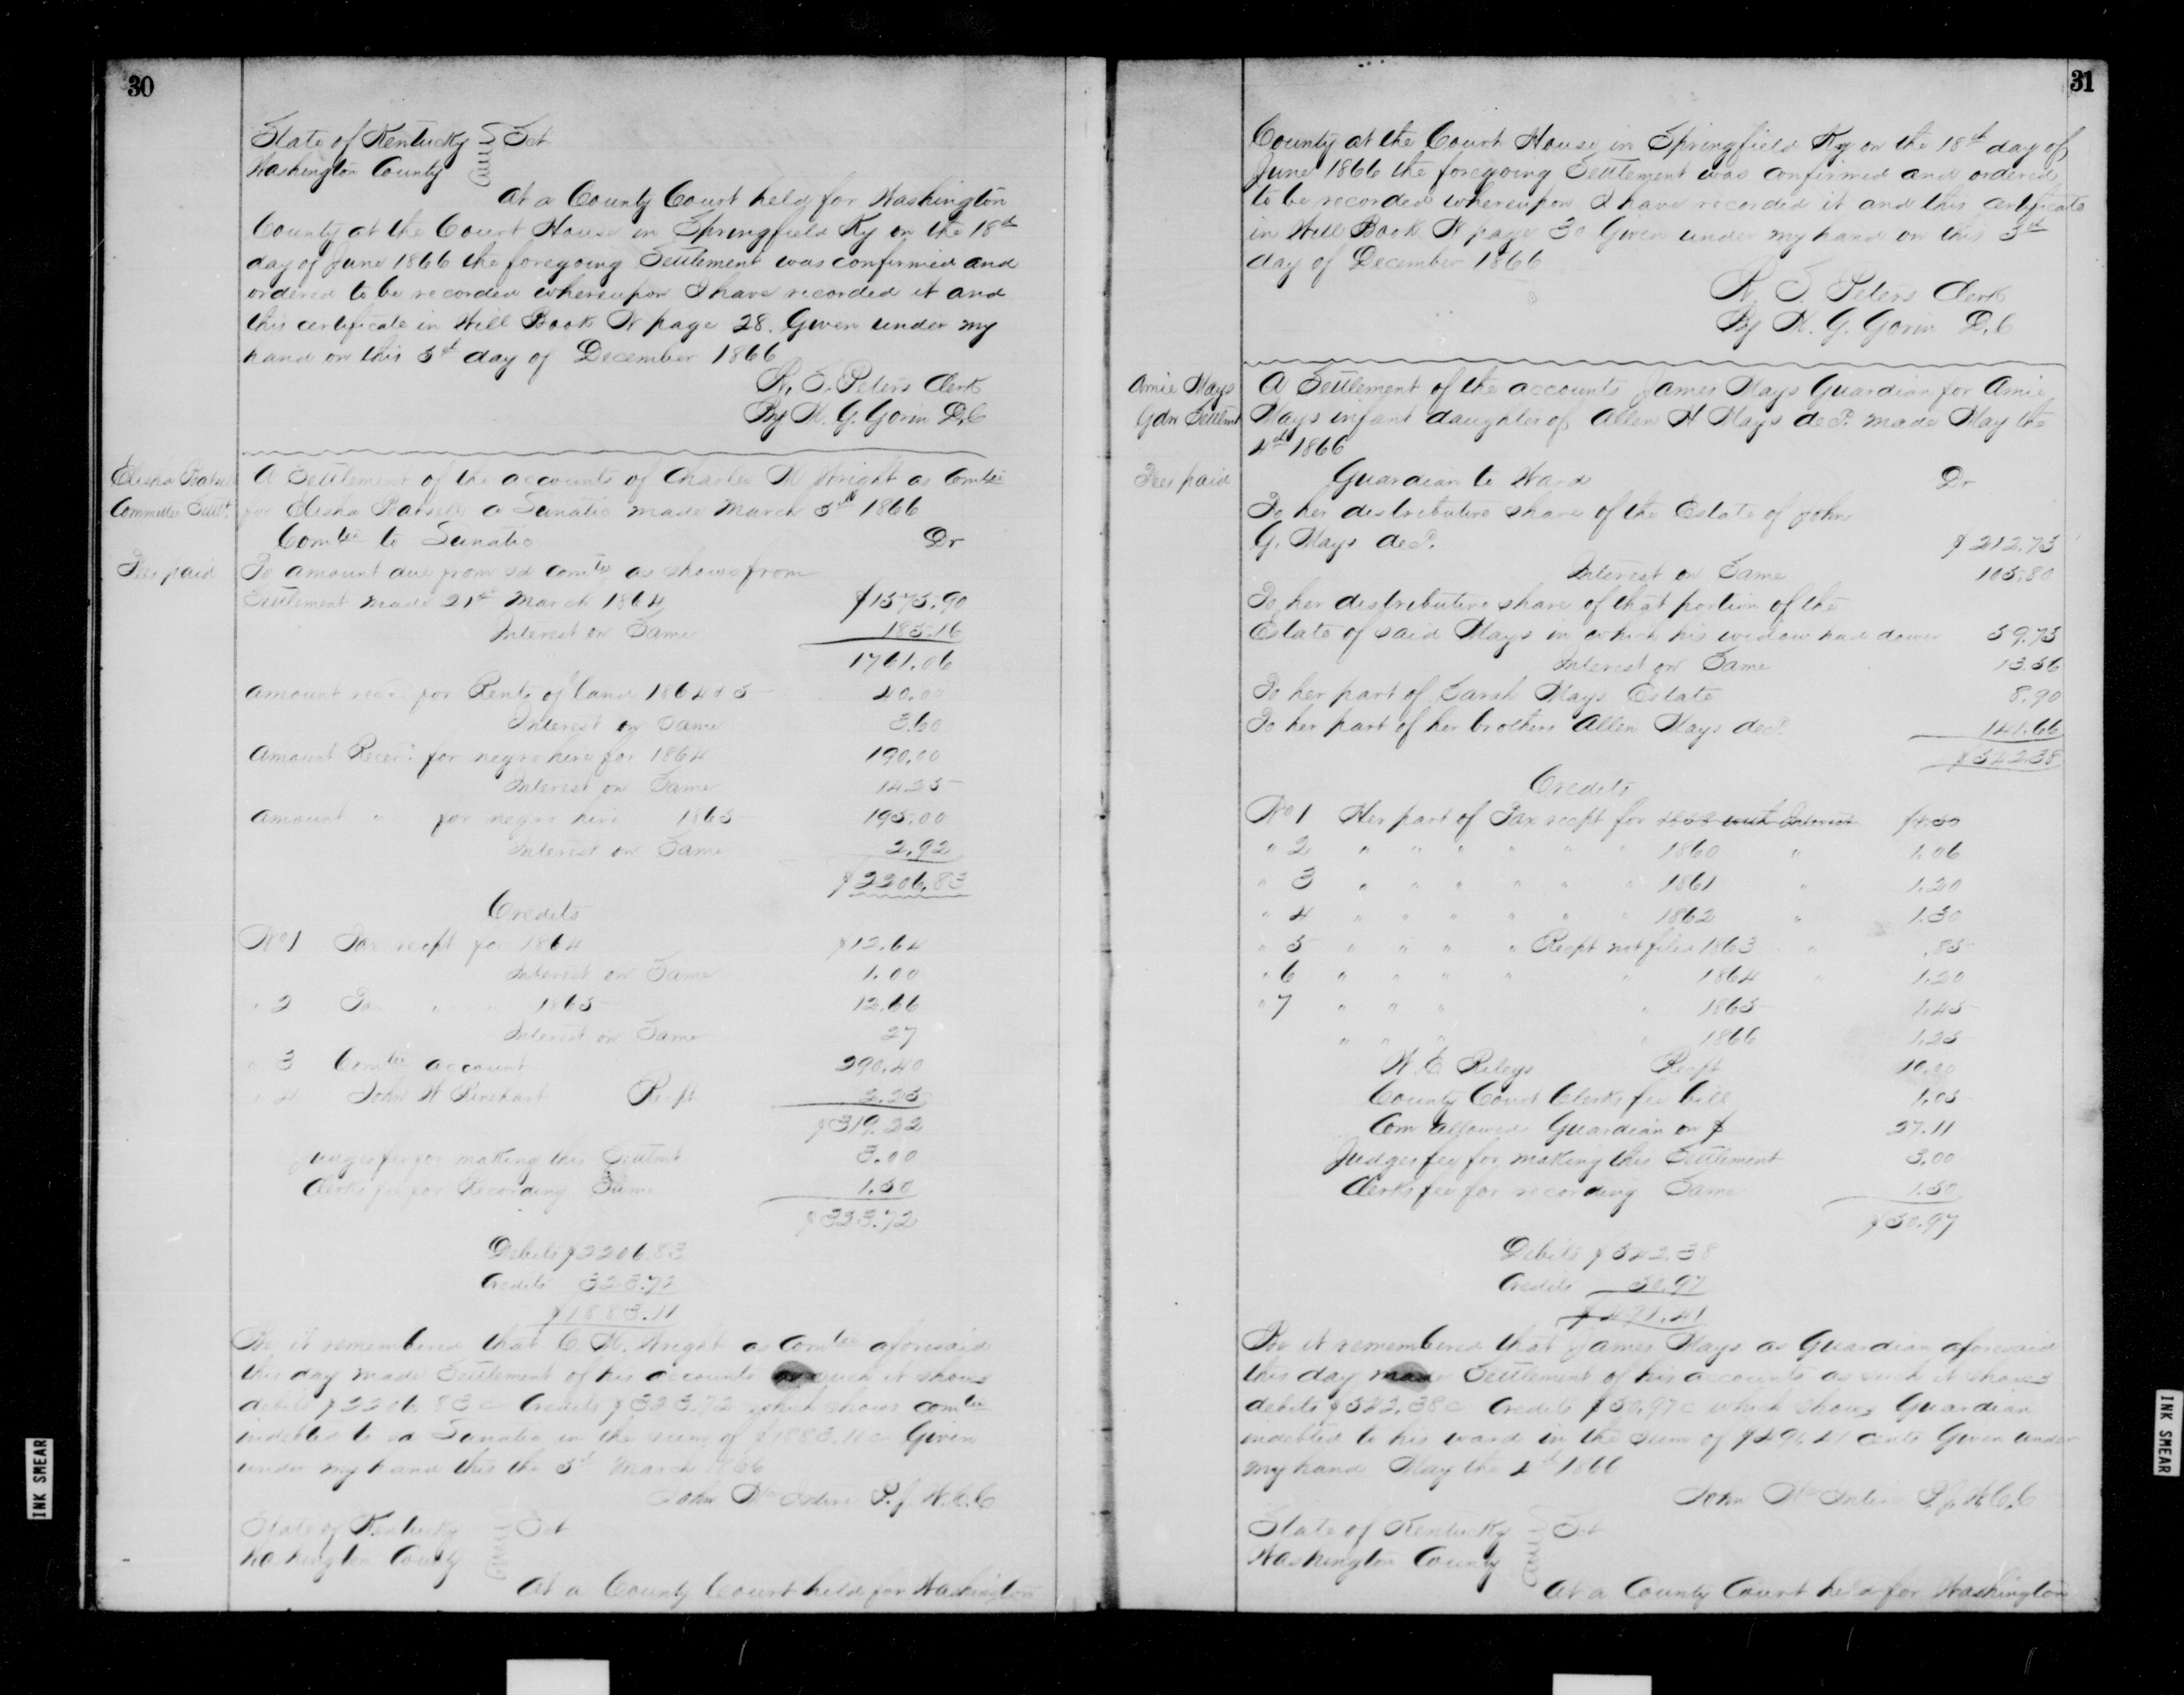 30
State of Kentucky Sct
Washington County
At a County Court held for Washington
County at the Court House in Springfield Ky on the 18th
day of June 1866 the foregoing Settlement was confirmed and
ordered to be recorded whereupon I have recorded it and
this certificate in Will Book N page 28. Given under my
hand on this 3d day of December 1866
W. S. Peters Clerk
By H. G. Gorin D.C
Elisha
Committee Settt.
A Settlement of the accounts of Charles H Wright as Comtee
for Elisha a Lunatic made March 5th 1866
Comtee to Lunatic Dr
Fees paid
To amount due from sd comtee as shows from
Settlement made 21st March 1864 $1575.90
Interest on Same 185.16
1761.06
Amount recd. for Rents of land 1864 & 5 40.00
Interest on Same 3.60
Amount Receid. for negro hire for 1864 190.00
Interest on Same 14.25
Amount " for negro hire 1865 195.00
Interest on Same 2.92
$2206.83
Credits
No 1 Tax recpt for 1864 $12.64
Interest on Same 1.00
" 2 Tax " " 1865 12.66
Interest on Same 27
" 3 Comtee account 290.40
" 4 John W Rinehart Recpt 2.25
$319.22
Judges fee for making this Settmt 3.00
Clerks fee for Recording Same 1.50
$323.72
Debits $2206.83
Credits 323.72
$1883.11
Be it remembered that C. H. Wright as Comtee aforesaid
this day made Settlement of his accounts as such it shows
debits $2206.83c Credits $323.72 which shows comtee
indebted to sd Lunatic in the sum of $1883.11c Given
under my hand this the 5th March 1866
John P.J. W.C.C
State of Kentucky Sct
Washington County
At a County Court held for Washington
31
County at the Court House in Springfield Ky on the 18th day of
June 1866 the foregoing Settlement was confirmed and ordered
to be recorded whereupon I have recorded it and this certificate
in Will Book N page 30 Given under my hand on this 3d
day of December 1866
W. S. Peters Clerk
By H. G. Gorin D.C
Amie Mays
Gdn Settlmt
A Settlement of the accounts James Mays Guardian for Amie
Mays infant daughter of Allen H Mays decd. made May the
4th 1866
Fees paid
Guardian to Ward Dr
To her distributive share of the Estate of John
G. Mays decd. $212.73
Interest on Same 105.80
To her distributive share of that portion of the
Estate of said Mays in which his widow had dower 59.73
Interest on Same 13.56
To her part of Sarah Mays Estate 8.90
To her part of her brothers Allen Mays decd. 141.66
$542.38
Credits
No 1 Her part of Tax recpt for with Interest
" 2 " " " " " " 1860 " 1.06
" 3 " " " " " " 1861 " 1.20
" 4 " " " " " " 1862 " 1.30
" 5 " " " " Recpt not filed 1863 " .85
" 6 " " " " " 1864 " 1.20
" 7 " " " " 1865 1.45
" " " " 1866 1.25
W. E Rileys Recpt 10.00
County Court Clerks fee bill 1.05
Com allowed Guardian on $ 27.11
Judges fee for making this Settlement 3.00
Clerks fee for recording Same 1.50
$50.97
Debits $542.38
Credits 50.97
$491.41
Be it remembered that James Mays as Guardian aforesaid
this day made Settlement of his accounts as such it shows
debits $542.38c Credits $50.97c which shows Guardian
indebted to his ward in the sum of $491 41 cents Given under
my hand May the 4th 1866
John P.J. W.C.C
State of Kentucky Sct
Washington County
At a County Court held for Washington
INK SMEAR
INK SMEAR